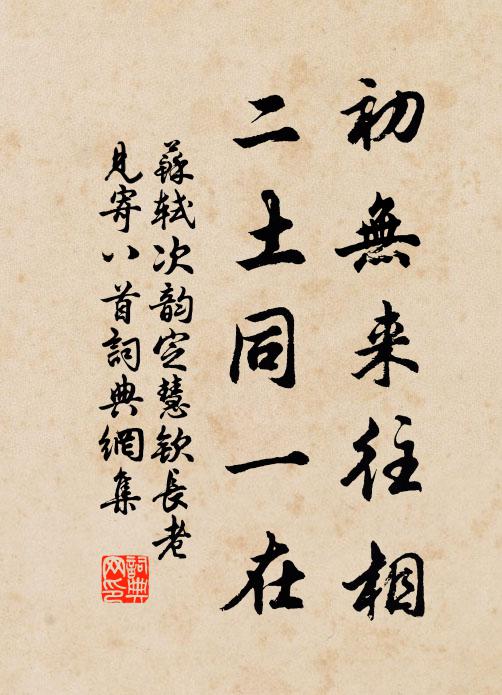 初無来往相
二土同一在
蘇軾次韵定慧欽長老
見寄八首詞典網集
詞典
网印